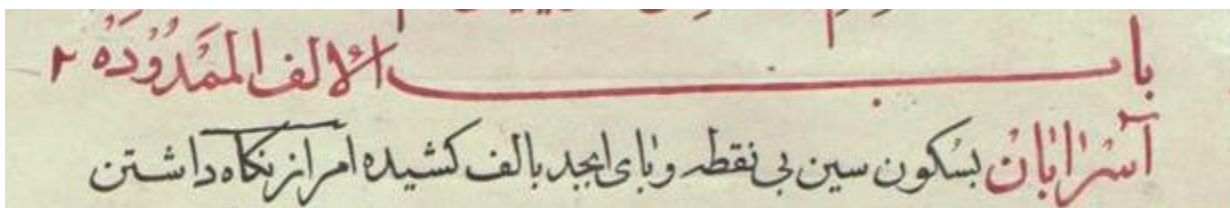 باب الالف الممدودة
آسرابان بسکون سین بی نقطه وبای ابجد بالف کشیده امر از نکاه داشتن